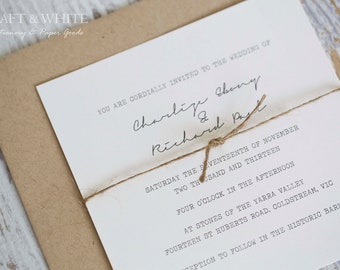 AFT & WHITE
Stationery & Paper Goods
YOU ARE CORDIALLY INVITED TO THE WEDDING OF
Charlize Ebony
&
Richard Paul
SATURDAY THE SEVENTEENTH OF NOVEMBER
TWO THOUSAND AND THIRTEEN
FOUR O'CLOCK IN THE AFTERNOON
AT STONES OF THE YARRA VALLEY
FOURTEEN ST HUBERTS ROAD, COLDSTREAM, VIC
RECEPTION TO FOLLOW IN THE HISTORIC BARN